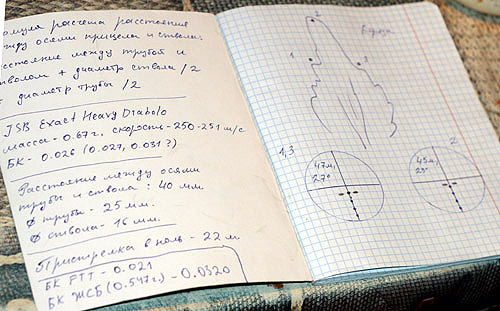 формула расчета расстояния
между осями прицела и ствола:
расстояние между трубой и
стволом + диаметр ствола / 2
+ диаметр трубы / 2
JSB Exact Heavy Diabolo
масса - 0.67 г, скорость - 250-251 м/с
БК - 0.026 (0.027, 0.031 ?)
Расстояние между осями
трубы и ствола : 40 мм.
Ø трубы - 25 мм.
Ø ствола - 16 мм.
Пристрелка в ноль - 22 м
БК FTT - 0.021
БК ЖСБ (0.547 г.) - 0.0320
2
Береза
1
1,3
47м,
27°
2
45м,